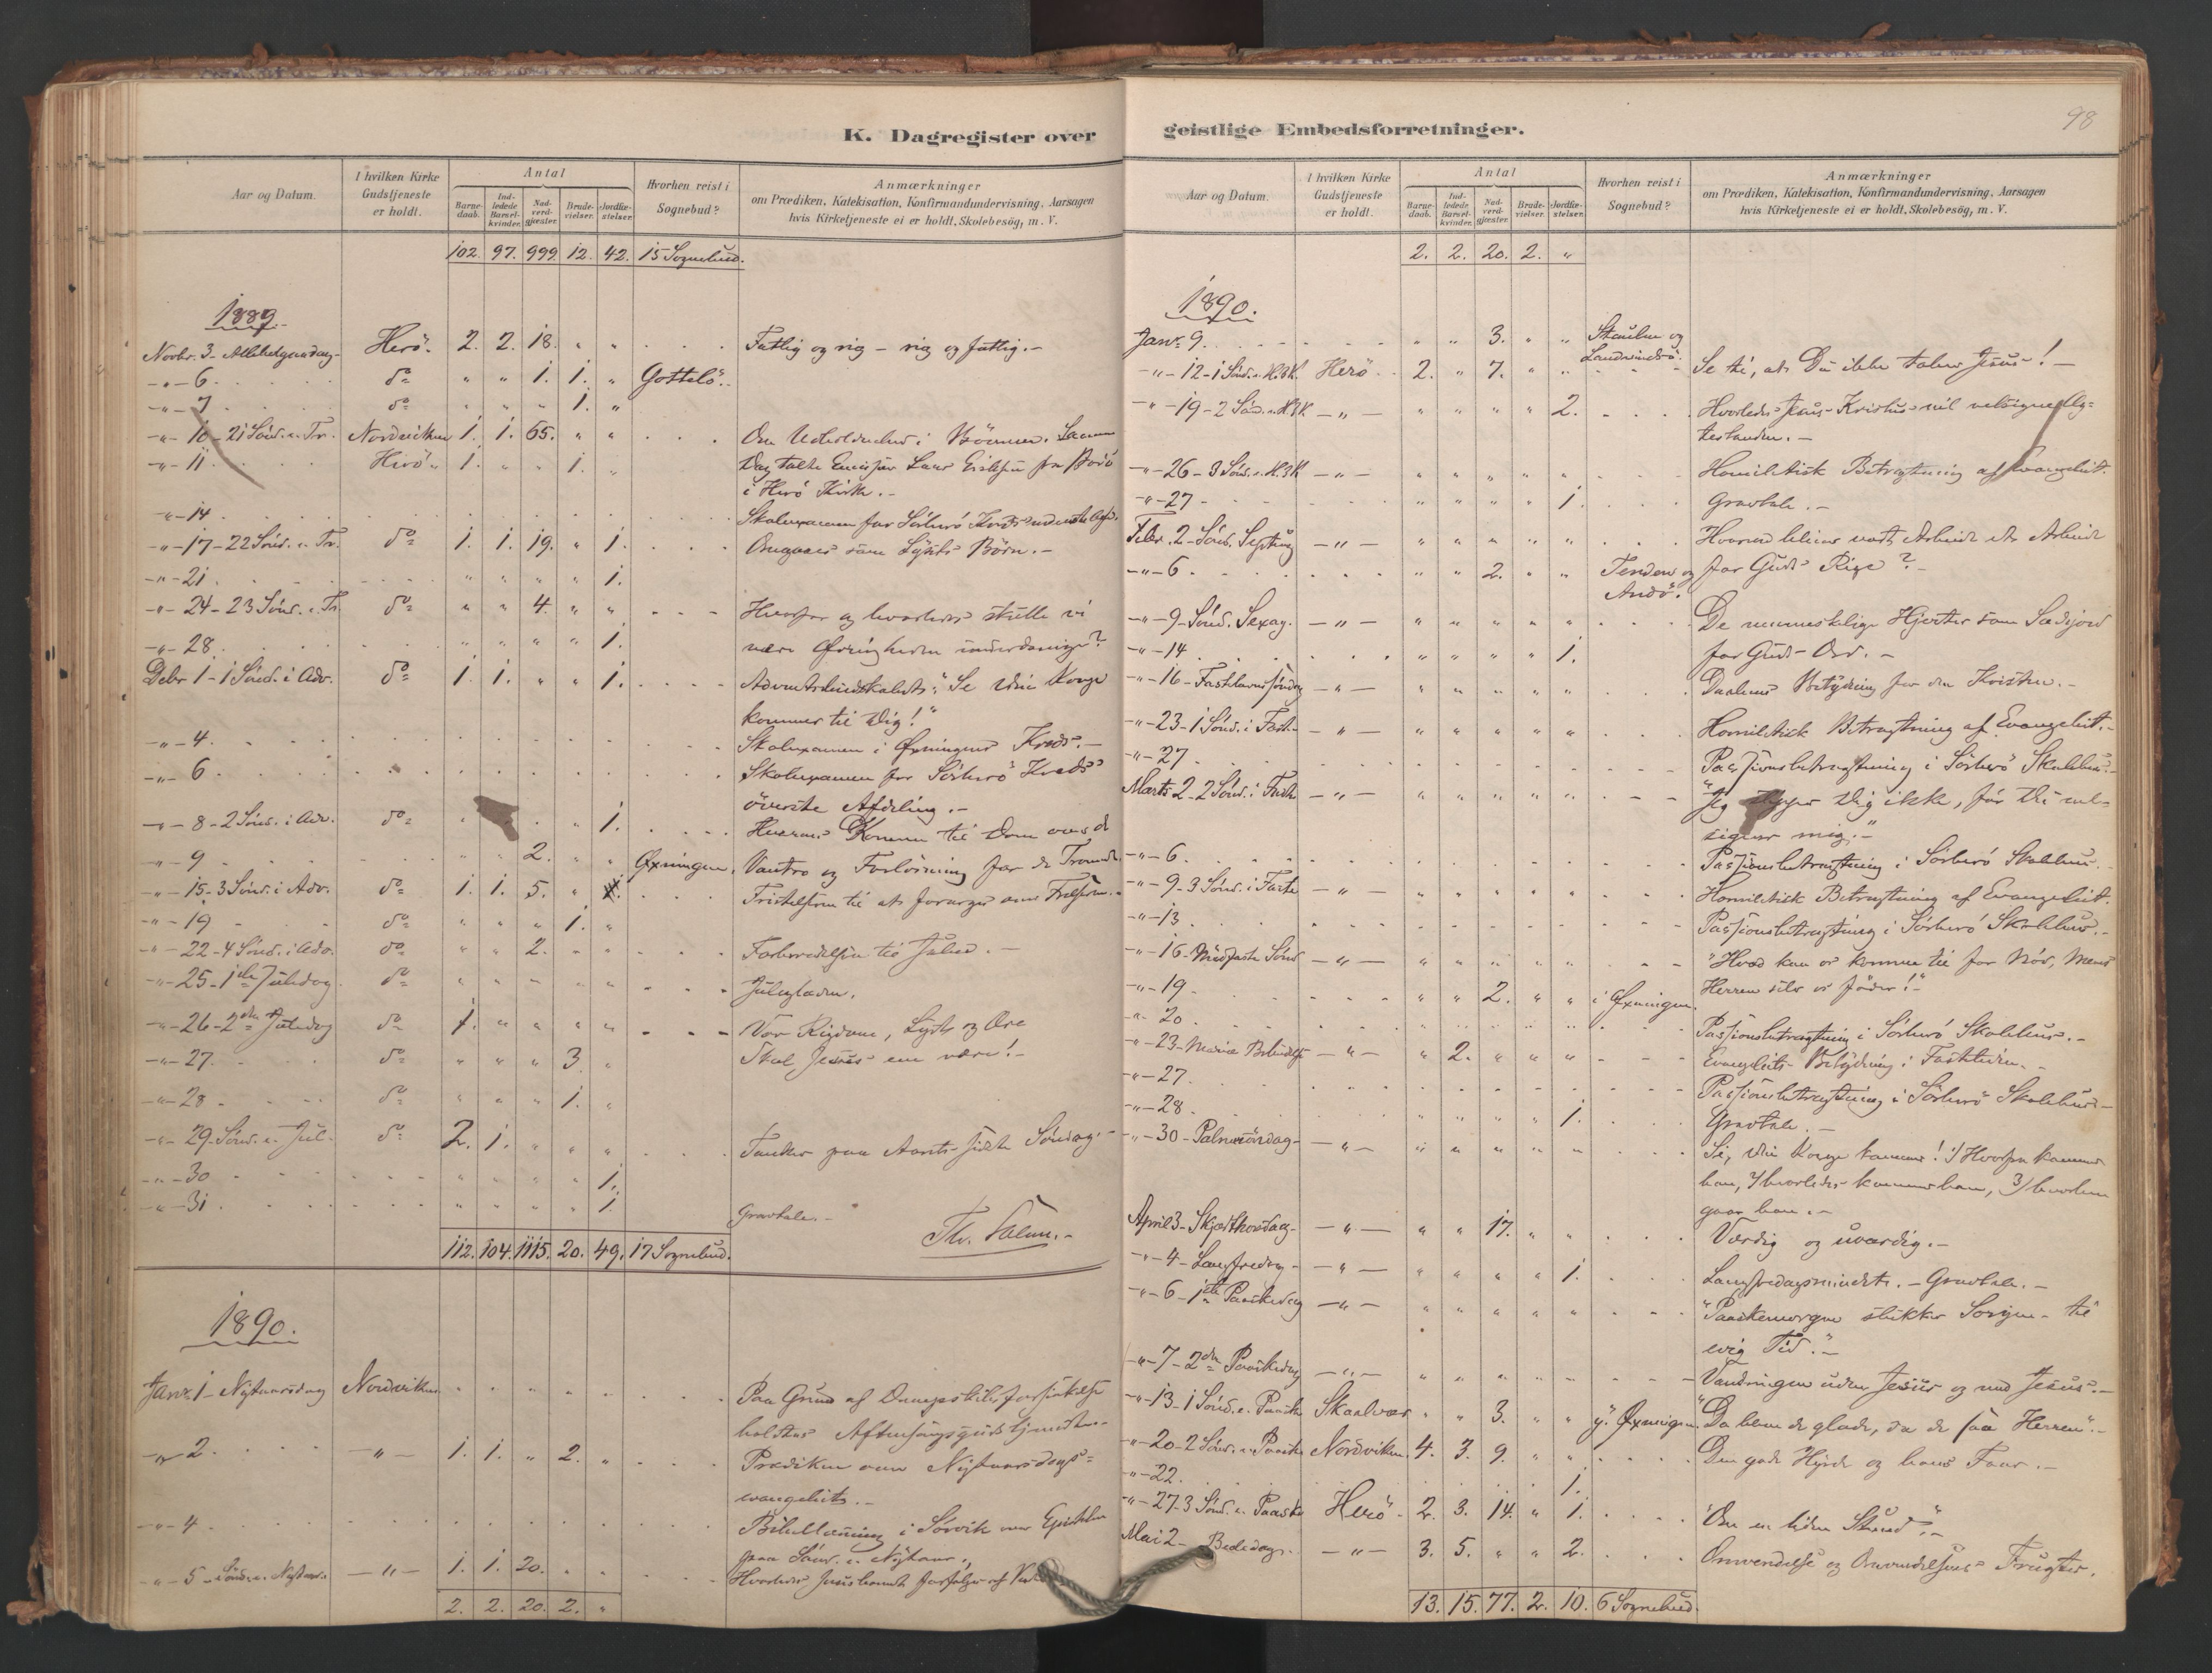 K. Dagregister over
Aar og Datum.
I hvilken Kirke Gudstjeneste er holdt.
Antal
Barnedaab. Indledede Barselkvinder. Nadverdgjæster. Brudevielser. Jordfæstelser.
Hvorhen reist i Sognebud?
Anmærkninger
om Prædiken, Katekisation, Konfirmandundervisning, Aarsagen
hvis Kirketjeneste ei er holdt, Skolebesög, m. V.
102. 97. 999. 12. 42. 15 Sognebud.
1889.
Novbr. 3 - Allehelgensdag - Herö. 2. 2. 18. " " Fattig og rig - rig og fattig. -
-"- 6 do " " 1. 1. " Gottelö.
-"- 7 do " " " 1. "
-"- 10 - 21 Sönd. e. Tr. Nordviken 1. 1. 65. " " Om Udholdenhed i Bönnen. Samme
-"- 11 Herö 1. " " 1. " Dag talte Emissær Lars Eriksen fra Bodö
i Herö Kirke. -
-"- 14 Skolexamen for Sörherö Kreds
-"- 17 - 22 Sönd. e. Tr. do 1. 1. 19. " 1. Omgaaes som Lysets Börn. -
-"- 21 " " " " 1.
-"- 24 - 23 Sönd. e. Tr. do " " 4. " " Hvorfor og hvorledes skulle vi
-"- 28. " " " " 1. være Øvrigheden underdanige?
Debr 1 - 1 Sönd. i Adv. do 1. 1. " " 1. Adventsbudskabet: "Se din Konge
kommer til dig!"
-"- 4. Skolexamen i Øxningens Kreds. -
-"- 6 Skolexamen for Sörherö Kreds
överste Afdeling. -
-"- 8 - 2 Sönd. i Adv. do " " " 1. Herrens Komme til Dom over de
-"- 9 " " 2. " " Øxningen. Vantro og Forlösning for de Troende.
-"- 15. 3 Sönd. i Adv. do 1. 1. 5. " Fristelsen til at forarges over Frelseren. -
-"- 19 do " " " 1. "
-"- 22 - 4 Sönd. i Adv. do " " 2. " " Forberedelsen til Julen. -
-"- 25 - 1ste Juledag do " " " " " Juleglæden.
-"- 26 - 2den Juledag do 1. " " " " Vor Rigdom, Lyst og Ære
-"- 27. do " " " 3. " Skal Jesus een være! -
-"- 28 do " " " 1. "
-"- 29 - Sönd. e. Jul. do 2. 1. " " " Tanker paa Aarets sidste Söndag. -
-"- 30 " " " " 1.
-"- 31 " " " " 1. Gravtale. -
112. 104. 1115. 20. 49. 17 Sognebud. Th. Falun. -
1890.
Janr 1 - Nytaarsdag Nordviken Paa Grund af
holdtes Aftensangsgudstjeneste. -
-"- 2. -"- 1. 1. " 2. " Prædiken over Nytaarsdags-
evangeliet. -
-"- 4 Bibellæsning i Sörvik over Epistelen
paa Sönd. e. Nytaar.
-"- 5 - Sönd. e. Nytaar. -"- 1. 1. 20. " " Hvorledes Jesusbarnet forfölges af
2. 2. 20. 2. "
98
geistlige Embedsforretninger.
Aar og Datum.
I hvilken Kirke Gudstjeneste er holdt.
Antal
Barnedaab. Indledede Barselkvinder. Nadverdgjæster. Brudevielser. Jordfæstelser.
Hvorhen reist i Sognebud?
Anmærkninger
om Prædiken, Katekisation, Konfirmandundervisning, Aarsagen
hvis Kirketjeneste ei er holdt, Skolebesög, m. V.
2. 2. 20. 2. "
1890.
Janr. 9. " " 3. " " og
-"- 12 - 1 Sönd. e. H.3K. Herö 2. " 7. " " Se til, at Du ikke taber Jesus! -
-"- 19 - 2 Sönd. e. H.3K -"- " " " " 2. Hvorledes Jesus Kristus vil velsigne Æg-
testanden. -
-"- 26 - 3 Sönd. e. H.3K -"- " " " " " Homiletisk Betragtning af Evangeliet.
-"- 27 " " " " 1. Gravtale. -
Febr. 2 - Sönd. Septuag -"- " " " " " Hvorved bliver vort Arbeide et Arbeide
-"- 6 " " 2. " " Tenden og Andö. for Guds Rige? -
-"- 9 - Sönd. Sexag. -"- " " " " " De menneskelige Hjerter som Sædejord
-"- 14 " " " " 1. for Guds Ord. -
-"- 16 - Fastelavnssöndag -"- " " " " " Daabens Betydning for den Kristne. -
-"- 23 - 1 Sönd. i Fast. -"- " " " " " Homiletisk Betragtning af Evangeliet. -
-"- 27 Passionsbetragtning i Sörherö Skolehus. -
Marts 2 - 2 Sönd. i Faste -"- " " " " " "Jeg slipper Dig ikke, för Du vel-
signer mig." -
-"- 6 Passionsbetragtning i Sörherö Skolehus.
-"- 9 - 3 Sönd. i Faste -"- " " " " " Homiletisk Betragtning af Evangeliet.
-"- 13 Passionsbetragtning i Sörherö Skolehus. -
-"- 16 - Midfaste Sönd -"- " " " " " "Hvad kan os komme til for Nöd, Mens
-"- 19 " " 2. " " i Øxningen. Herren selv os föder!"
-"- 20 Passionsbetragtning i Sörherö Skolehus. -
-"- 23 - Mariæ Bebudelse -"- " 2. " " " Evangeliets Betydning i Fastetiden. -
-"- 27. Passionsbetragtning i Sörherö Skolehus -
-"- 28 " " " " 1. Gravtale. -
-"- 30 - Palmesöndag - -"- " " " " " Se, din Konge kommer! 1) Hvorfra kommer
han, 2) hvorledes kommer han, 3) hvorhen
gaar han. -
April 3 - Skjærthorsdag - -"- " " 17. " " Værdig og uværdig. -
-"- 4 - Langfredag - -"- " " " " 1. Langfredagsmindet. - Gravtale. -
-"- 6 - 1ste Paaskedag -"- " " " " " "Paaskemorgen slukker Sorgen - til
evig Tid." -
-"- 7 - 2den Paaskedag -"- " " " " " Vandringen uden Jesus og med Jesus. -
-"- 13 - 1 Sönd. e. Paaske Skaalvær " " 3. " " Øxningen. "Da bleve de glade, da de saa Herren". -
-"- 20 - 2 Sönd. e. Paaske Nordviken. 4. 3. 9. " " Den gode Hyrde og hans Faar. -
-"- 22. 1.
-"- 27. 3 Sönd. e. Paaske Herö 2. 3. 14. " 1. "Om en liden Stund". -
Mai 2 - Bededag. -"- 3. 5. " " 2. Omvendelse og Omvendelsens Frugter.
13. 15. 77. 2. 10. 6 Sognebud.